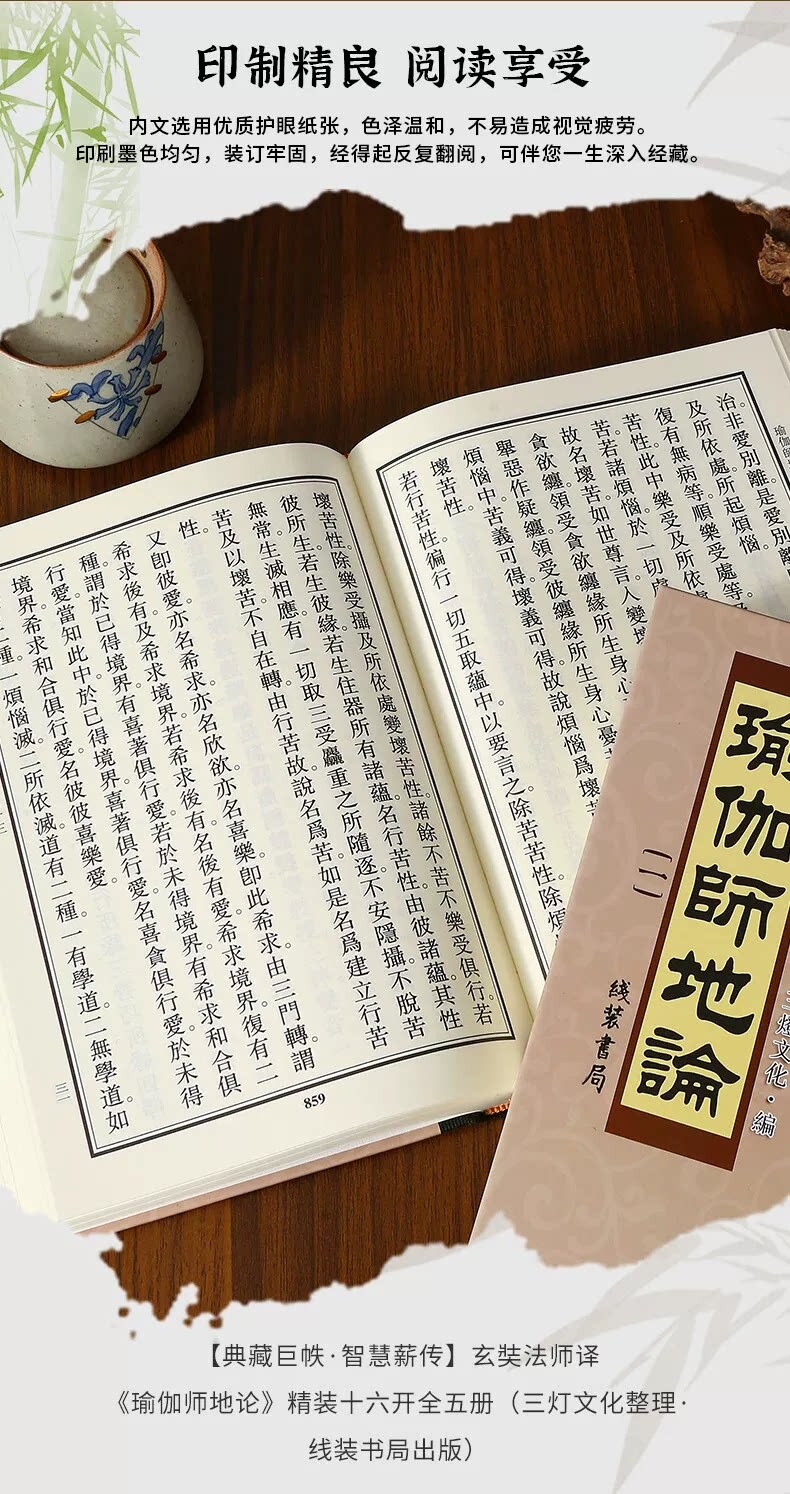 印制精良 阅读享受
内文选用优质护眼纸张，色泽温和，不易造成视觉疲劳。
印刷墨色均匀，装订牢固，经得起反复翻阅，可伴您一生深入经藏。
瑜伽師
治非愛別離是愛別離
及所依處所起煩惱。
復有無病等順樂受處等
苦性此中樂受及所依
苦若諸煩惱於一切
故名壞苦如世尊言入變
貪欲纏領受貪欲纏緣所生身心憂
舉惡作疑纏領受彼纏緣所生身心
煩惱中苦義可得壞義可得故說煩惱爲壞
壞苦性。
若行苦性徧行一切五取蘊中以要言之除苦苦性除煩
壞苦性除樂受攝及所依處變壞苦性。諸餘不苦不樂受俱行。若
彼所生若生彼緣若生住器所有諸蘊名行苦性。由彼諸蘊其性
無常生滅相應有一切取三受麤重之所隨逐。不安隱攝。不脫苦
苦及以壞苦不自在轉。由行苦故。說名爲苦。如是名爲建立行苦
性。
又卽彼愛。亦名希求。亦名欣欲。亦名喜樂。卽此希求。由三門轉。謂
希求後有及希求境界。若希求後有。名後有愛。希求境界。復有二
種。謂於已得境界。有喜著俱行愛。若於未得境界。有希求和合俱
行愛。當知此中於已得境界喜著俱行愛。名喜貪俱行愛。於未得
境界希求和合俱行愛。名彼彼喜樂愛。
二種。一煩惱滅。二所依滅。道有二種。一有學道。二無學道。如
859
瑜伽師地論
(二)
线装書局
三燈文化·編
【典藏巨帙·智慧薪传】玄奘法师译
《瑜伽师地论》精装十六开全五册（三灯文化整理·
线装书局出版）